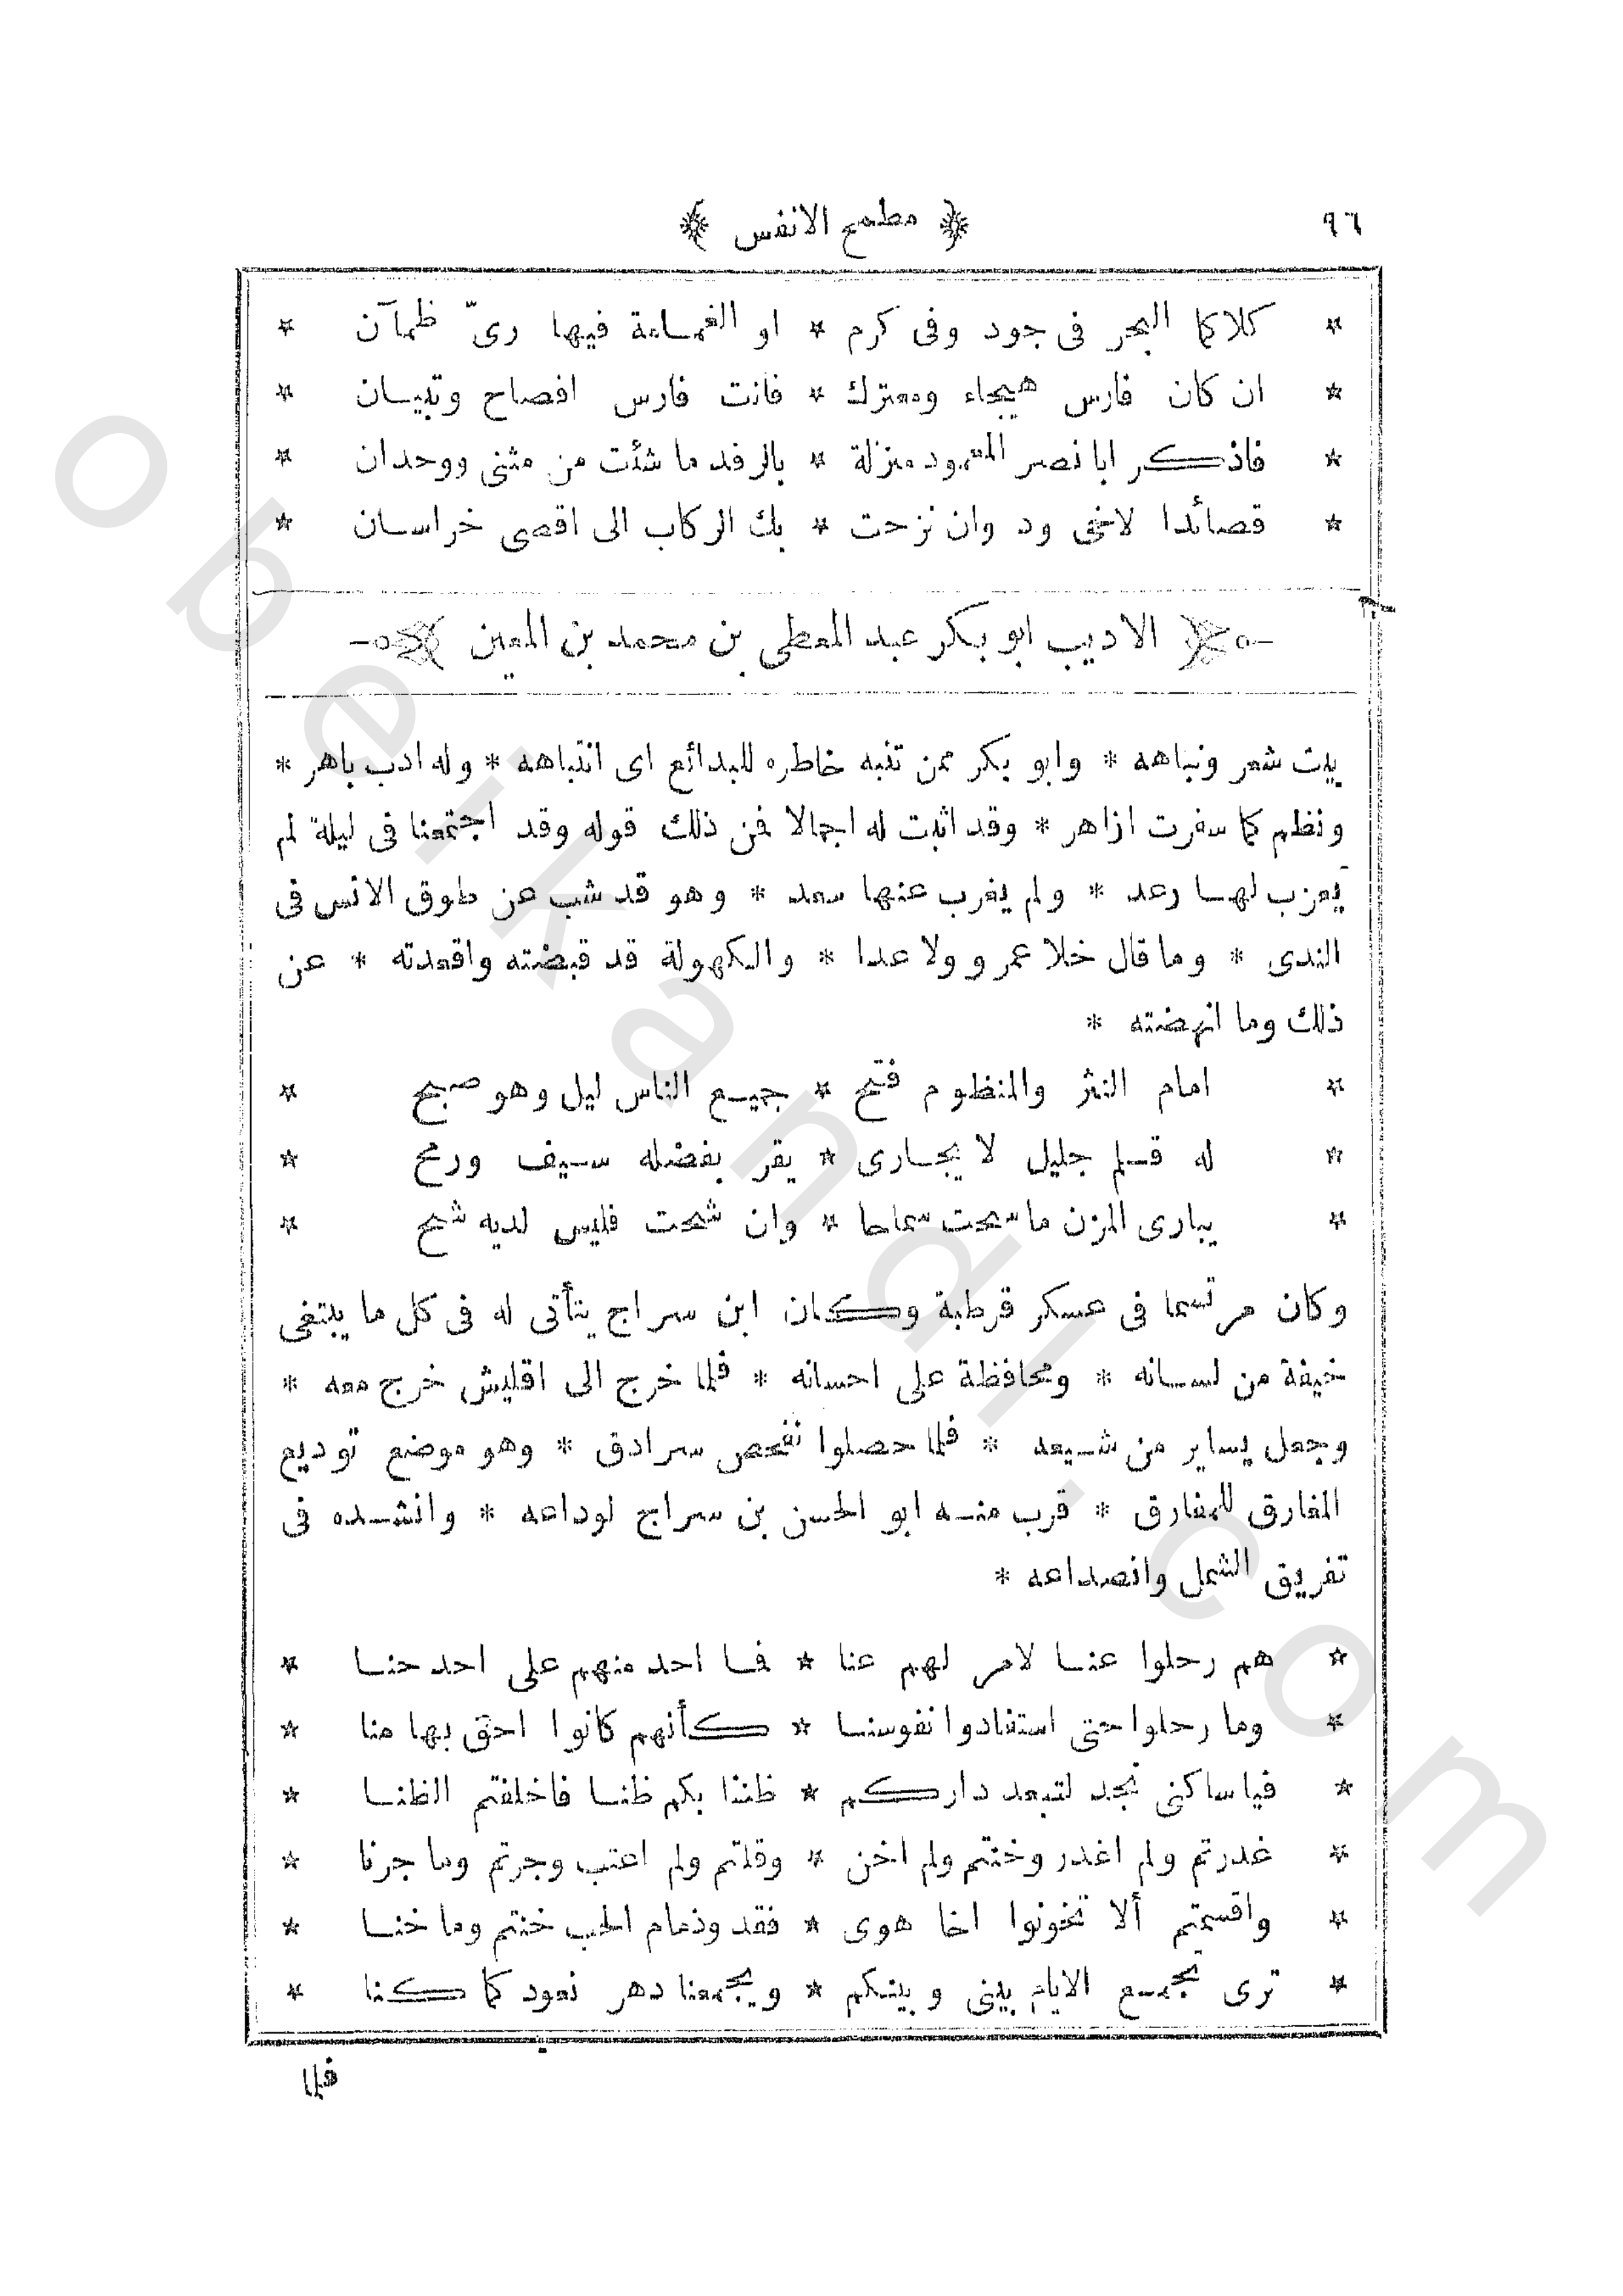 ٩٦ ﴿ مطمح الانفس ﴾
* كلاكما البحر فى جود وفى كرم * او الغمامة فيها رىّ ظمآن *
* ان كان فارس هيجاء ومعترك * فانت فارس افصاح وتبيان *
* فاذكر ابا نصر المعمود منزلة * بالرفد ما شئت من مثنى ووحدان *
* قصائدا لاخى ود وان نزحت * بك الركاب الى اقصى خراسان *
﴿ الاديب ابو بكر عبد المعطى بن محمد بن المعين ﴾
بيت شعر ونباهه * وابو بكر ممن تنبه خاطره للبدائع اى انتباهه * وله ادب باهر *
ونظم كما سفرت ازاهر * وقد اثبت له اجمالا فمن ذلك قوله وقد اجتمعنا فى ليلة لم
يعزب لها رعد * ولم يغرب عنها سعد * وهو قد شب عن طوق الانس فى
الندى * وما قال خلا عمرو ولا عدا * والكهولة قد قبضته واقعدته * عن
ذلك وما انهضته *
* امام النثر والمنظوم فتح * جميع الناس ليل وهو صبح *
* له قلم جليل لا يجارى * يقر بفضله سيف ورمح *
* يبارى المزن ما سحت سماحا * وان شحت فليس لديه شح *
وكان مرتسما فى عسكر قرطبة وكان ابن سراج يتأتى له فى كل ما يبتغى
خيفة من لسانه * ومحافظة على احسانه * فلما خرج الى اقليش خرج معه *
وجعل يساير من شيعه * فلما حصلوا بفحص سرادق * وهو موضع توديع
المفارق للمفارق * قرب منه ابو الحسن بن سراج لوداعه * وانشده فى
تفريق الشمل وانصداعه *
* هم رحلوا عنا لامر لهم عنا * فما احد منهم على احد حنا *
* وما رحلوا حتى استفادوا نفوسنا * كأنهم كانوا احق بها منا *
* فيا ساكنى نجد لتبعد داركم * ظننا بكم ظنا فاخلفتم الظنا *
* غدرتم ولم اغدر وخنتم ولم اخن * وقلتم ولم اعتب وجرتم وما جرنا *
* واقسمتم ألا تخونوا اخا هوى * فقد وذمام الحب خنتم وما خنا *
* ترى تجمع الايام بينى وبينكم * ويجمعنا دهر نعود كما كنا *
فلما
obeikandl.com